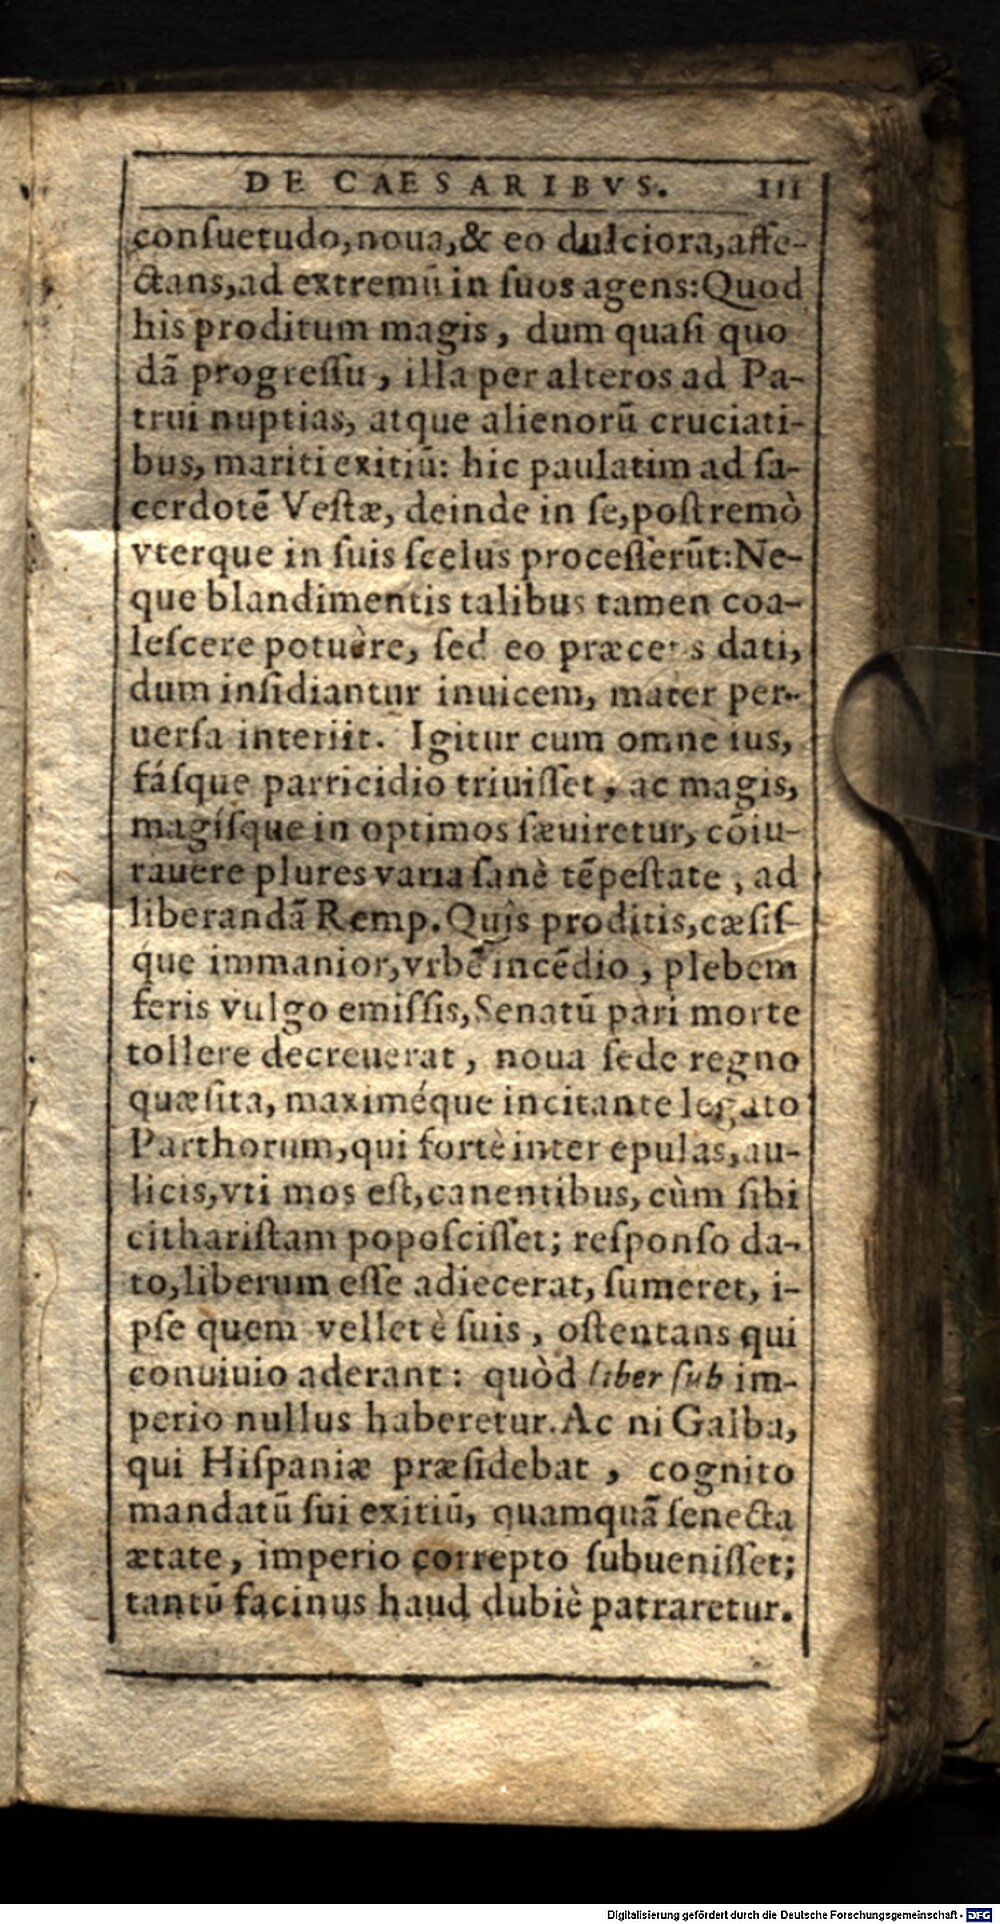 DE CAESARIBVS. III
conſuetudo, noua, & eo dulciora, affe-
ctans, ad extremū in ſuos agens: Quod
his proditum magis, dum quaſi quo
dā progreſſu, illa per alteros ad Pa-
trui nuptias, atque alienorū cruciati-
bus, mariti exitiū: hic paulatim ad ſa-
cerdotē Veſtæ, deinde in ſe, poſtremò
vterque in ſuis ſcelus proceſſerūt: Ne-
que blandimentis talibus tamen coa-
leſcere potuère, ſed eo præceps dati,
dum inſidiantur inuicem, mater per-
uerſa interiit. Igitur cum omne ius,
fáſque parricidio triuiſſet, ac magis,
magíſque in optimos ſæuiretur, cōiu-
rauere plures varia ſanè tēpeſtate, ad
liberandā Remp. Quîs proditis, cæſiſ-
que immanior, vrbē incēdio, plebem
feris vulgo emiſſis, Senatū pari morte
tollere decreuerat, noua ſede regno
quæſita, maximéque incitante legato
Parthorum, qui fortè inter epulas, au-
licis, vti mos eſt, canentibus, cùm ſibi
cithariſtam popoſciſſet; reſponſo da-
to, liberum eſſe adiecerat, ſumeret, i-
pſe quem vellet è ſuis, oſtentans qui
conuiuio aderant: quòd liber ſub im-
perio nullus haberetur. Ac ni Galba,
qui Hiſpaniæ præſidebat, cognito
mandatū ſui exitiū, quamquā ſenecta
ætate, imperio correpto ſubueniſſet;
tantū facinus haud dubiè patraretur.
Digitalisierung gefördert durch die Deutsche Forschungsgemeinschaft - DFG